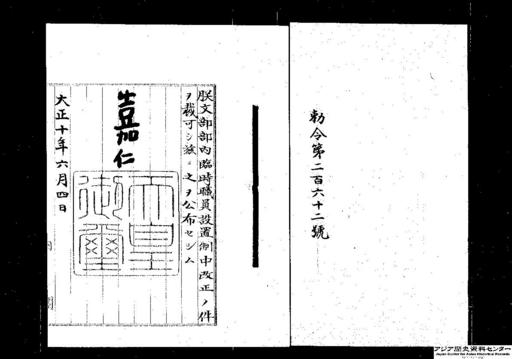 勅令第二百六十二號
朕文部部內臨時職員設置制中改正ノ件
ヲ裁可シ茲ニ之ヲ公布セシム
嘉仁
天皇御璽
大正十年六月四日
アジア歴史資料センター
Japan Center for Asian Historical Records